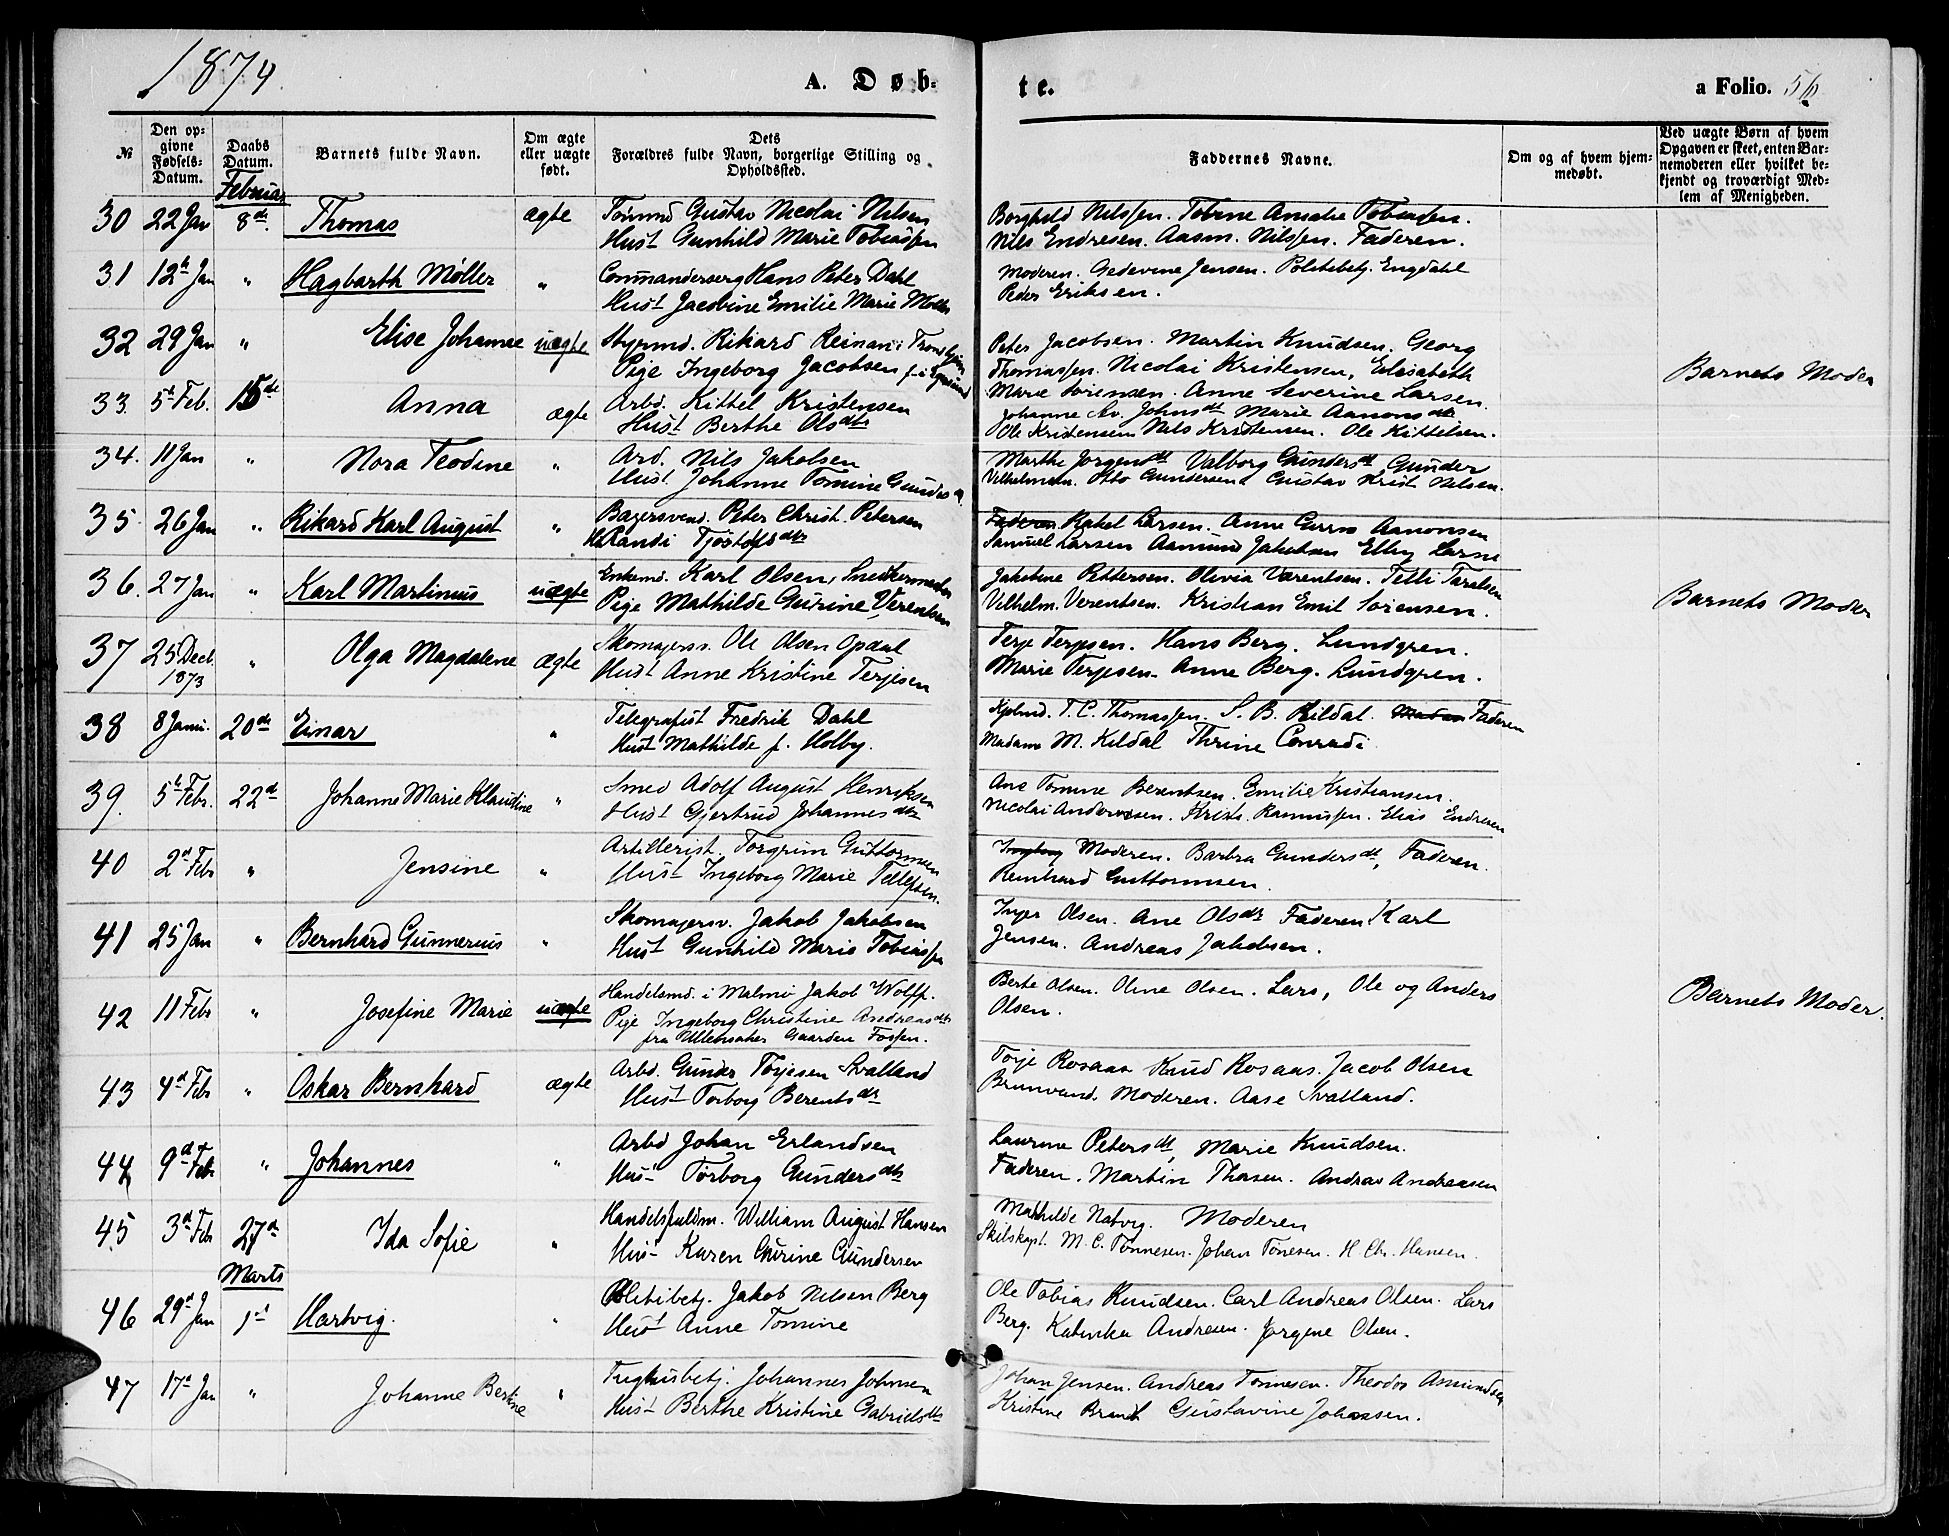 1874.
A. Døb-
te.
a Folio. 56
№
Den opgivne Fødsels-Datum.
Daabs Datum.
Barnets fulde Navn.
Om ægte eller uægte født.
Dets Forældres fulde Navn, borgerlige Stilling og Opholdssted.
Faddernes Navne.
Om og af hvem hjemmedøbt.
Ved uægte Børn af hvem Opgaven er skeet, enten Barnemoderen eller hvilket bekjendt og troværdigt Medlem af Menigheden.
Februar
30 22 Jan 8de Thomas ægte Gustav Nicolai Nilsen Borghild Nilssen. Tobine Amalie Tobiassen.
Hust Gunhild Marie Tobiassen Nils Endresen. Aasm. Nilssen. Faderen.
31 12te Jan " Hagbarth Møller " Hans Peter Dahl Moderen. Gedevine Jensen. Politibetj. Engdahl
Hust Jacobine Emilie Marie Møller Peder Eriksen.
32 29 Jan " Elise Johanne uægte Styrmd. Rikard Reinan i Trondhjem Peter Jacobsen. Martin Knudsen. Georg
Pige Ingeborg Jacobsen Thomassen. Nicolai Kristensen, Elisabeth Barnets Moder
33. 5te Feb. 15de Anna ægte Arbd. Kittel Kristensen Marie Sørensen. Anne Severine Larsen.
Hust Berthe Olsdtr Johanne Johnsdt Marie Aanonsdtr
Ole Kristensen Nils Kristensen. Ole Kittelsen.
34. 11 Jan " Nora Teodine " Ard. Nils Jakobsen Marthe Jorgensdt Valborg Gundersdt Gunder
Hust. Johanne Tomine Gundersd. Vilhelmsen. Otto Gundersen. Gustav Krist Nilsen.
35. 26 Jan " Rikard Karl August " Bagersvend. Peter Christ. Petersen Faderen. Rakel Larsen. Anne Aanonsen
H. Randi Tjøstolfsdtr Samuel Larsen Aamund Jakobsen
36. 27 Jan " Karl Martinius uægte Enkemd. Karl Olsen, Snedkermester Jakobine Pettersen. Olivia Verentsen. Telli Taralsen
Pige Mathilde Gurine Verentsen Vilhelm. Verentsen. Kristian Emil Sørensen. Barnets Moder
37 25 Decb. 1873 " Olga Magdalene ægte Skomagersv. Ole Olsen Opdal Terje Terjesen. Hans Berg. Lundgren.
Hust Anne Kristine Terjesen Marie Terjesen. Anne Berg. Lundgren.
38 8 Janu. 20de Einar " Telegrafist Fredrik Dahl Kjbmd. T. C. Thomassen. S. B. Kildal. Faderen
Hust Mathilde f. Holby. Madame M. Kildal Thrine Conradi.
39. 5te Febr. 22de Johanne Marie Klaudine " Smed Adolf August Henriksen Ane Tomine Berentsen. Emilie Kristiansen.
Hust Gjertrud Johannesdtr Nicolai Andersen. Krist. Rasmussen. Elias Endresen
40 2d Feb " Jensine " Artillerist. Torgrim Guttormsen Ingeborg Moderen. Barbra Gundersdt, Faderen.
Hust Ingeborg Marie Tellefsen. Reinhard Guttormsen.
41 25 Jan " Bernhard Gunnerius " Skomagersv. Jakob Jakobsen Inger Olsen. Ane Olsdtr Faderen Karl
Hust Gunhild Marie Tobiassen Jensen. Andreas Jakobsen.
42 11 Feb " Josefine Marie uægte Handelsmd. i Malmö Jakob Wolff. Berte Olsen. Oline Olsen. Lars, Ole og Anders
Pige Ingeborg Christine Andreasdtr Olsen. Barnets Moder.
fra Ullensaker Gaarden Fossen.
43 4d Feb " Oskar Bernhard ægte Arbd. Gunder Torjesen Svalland Torje Rosaas Knud Rosaas. Jacob Olsen
Hust Torborg Berentsdtr Brunvand. Moderen. Aase Svalland.
44 9d Feb " Johannes " Arbd Johan Erlandsen Laurine Petersdt, Marie Knudsen.
Hus- Torborg Gundersdtr Faderen. Martin Thorsen. Andreas Andreasen
45 3d Feb 27d Ida Sofie " Handelsfuldm. William August Hansen Mathilde Natvig. Moderen
Hus- Karen Gurine Gundersen Skibskapt. M. C. Tønnesen. Johan Tønesen. H. Chr. Hansen.
Marts
46 29d Jan 1st Hartvig. " Politibetj. Jakob Nilsen Berg Ole Tobias Knudsen. Carl Andreas Olsen. Lars
Hust Anne Tomine Berg. Katinka Andresen. Jørgine Olsen.
47 17d Jan " Johanne Bertine " Tugthusbetj. Johannes Johnsen Johan Jensen. Andreas Tønnesen. Theodor Asmundsen
Hust Berthe Kristine Gabrielsdtr Kristine Brandt Gustavine Johansen.